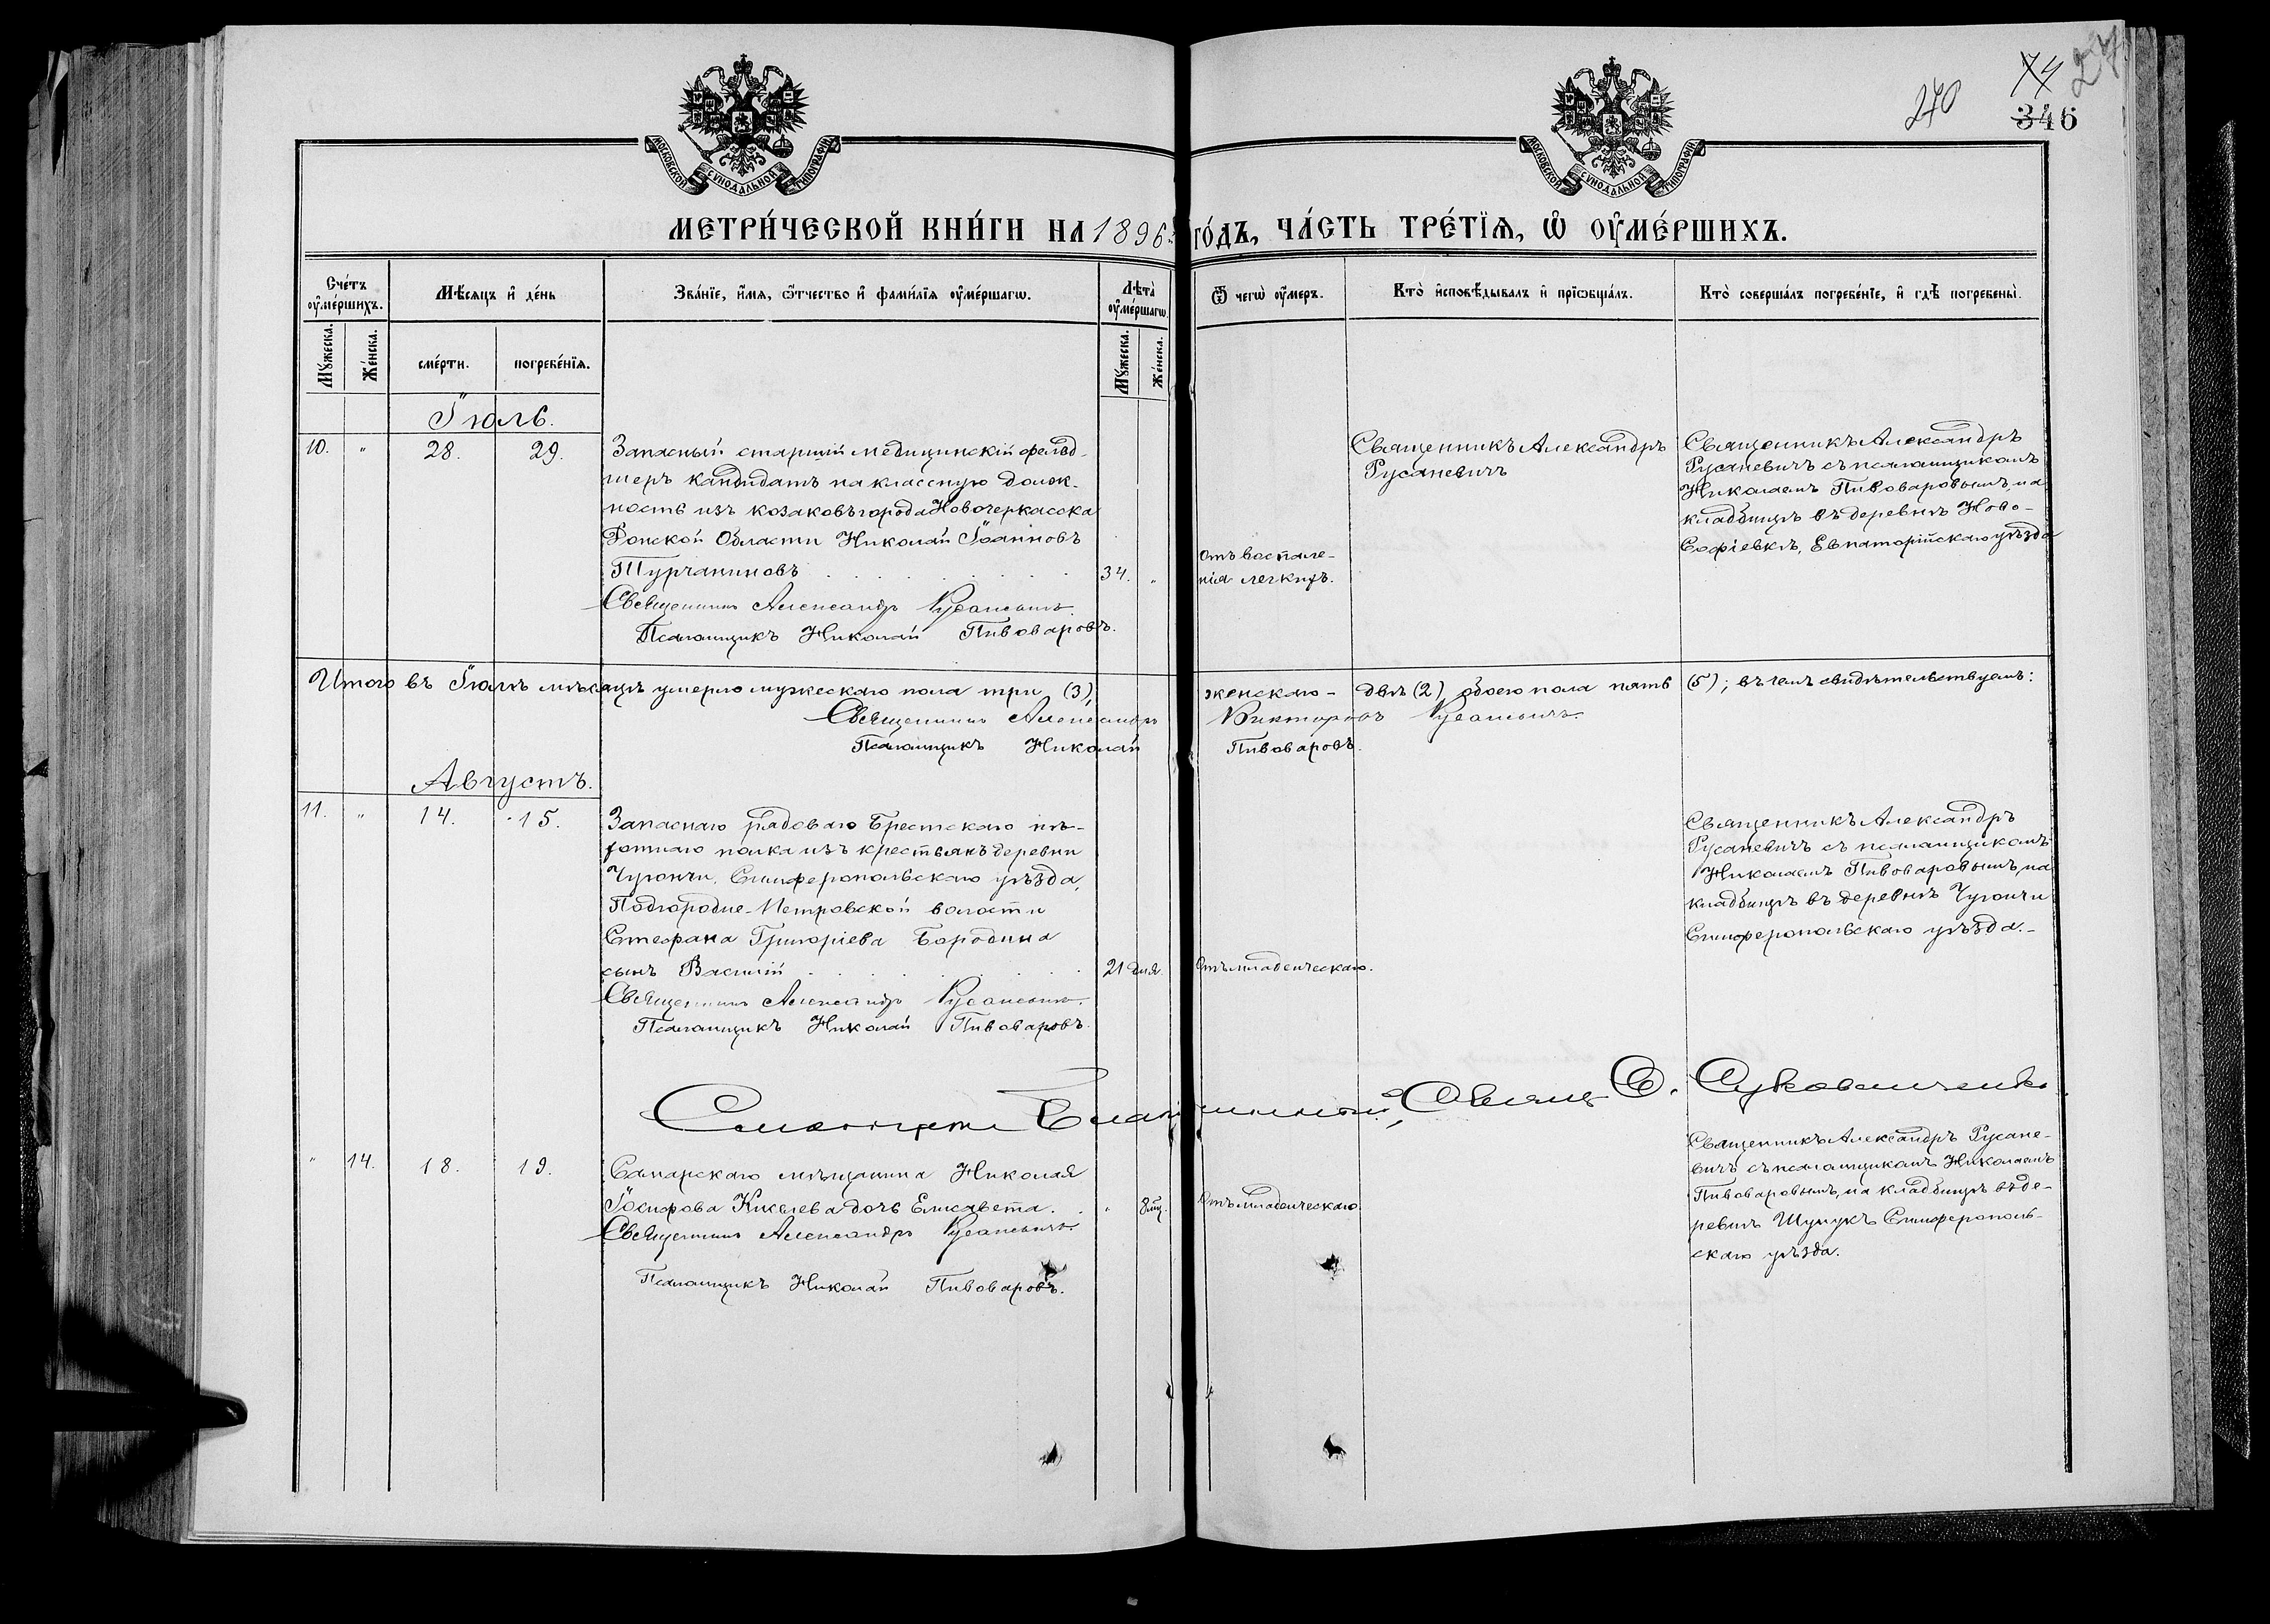 270
74
27
346
МОСКОВСКОЙ СѴНОДАЛЬНОЙ ТИПОГРАФІИ
МОСКОВСКОЙ СѴНОДАЛЬНОЙ ТИПОГРАФІИ
МЕТРИ́ЧЕСКОЙ КНИ́ГИ НА 1896й ГО́ДЪ, ЧА́СТЬ ТРЕ́ТЇѦ, Ѡ҆ ОУ҆МЕ́РШИХЪ.
Сче́тъ оу҆ме́ршихъ.
Мѣ́сѧцъ и҆ де́нь
Зва́нїе, и҆́мѧ, ѻ҆́тчество и҆ фами́лїѧ оу҆ме́ршагѡ.
Лѣта̀ оу҆ме́ршагѡ.
Ѿ чегѡ̀ оу҆́меръ.
Кто̀ и҆сповѣ́дывалъ и҆ прїѡбща́лъ.
Кто̀ соверша́лъ погребе́нїе, и҆ гдѣ̀ погребены̀.
Мꙋ́жеска.
Же́нска.
сме́рти.
погребе́нїѧ.
Мꙋ́жеска.
Же́нска.
Іюль.
10. " 28. 29.
Запасный старшій медицинскій фельд-
шеръ кандидатъ на классную долж-
ность изъ козаковъ города Новочеркасска
Донской Области Николай Іоанновъ
Турчаниновъ . . . . . . . . 34. "
Священникъ Александръ Русаневичъ.
Псаломщикъ Николай Пивоваровъ.
Отъ воспале-
нія легкихъ.
Священникъ Александръ
Русаневичъ
Священникъ Александръ
Русаневичъ съ псаломщикомъ
Николаемъ Пивоваровымъ, на
кладбищѣ въ деревнѣ Ново-
Софіевкѣ, Евпаторійскаго уѣзда
Итого въ Іюлѣ мѣсяцѣ умерло мужескаго пола три (3), женскаго - двѣ (2), обоего пола пять (5); въ чемъ свидѣтельствуемъ:
Священникъ Александръ Викторовъ Русаневичъ.
Псаломщикъ Николай Пивоваровъ.
Августъ.
11. " 14. 15.
Запаснаго рядоваго Брестскаго пѣ-
хотнаго полка изъ крестьянъ деревни
Чуюнчи, Симферопольскаго уѣзда,
Подгородне-Петровской волости
Стефана Григоріева Бородина
сынъ Василій . . . . . . . . 21 дня.
Священникъ Александръ Русаневичъ.
Псаломщикъ Николай Пивоваровъ.
Отъ младенческаго.
Священникъ Александръ
Русаневичъ съ псаломщикомъ
Николаемъ Пивоваровымъ, на
кладбищѣ въ деревнѣ Чуюнчи
Симферопольскаго уѣзда.-
Благочинный, Священ.
" 14. 18. 19.
Самарскаго мѣщанина Николая
Іосифова Киселева дочь Елисавета. . " 8 мц.
Священникъ Александръ Русаневичъ.
Псаломщикъ Николай Пивоваровъ.
Отъ младенческаго
Священникъ Александръ Русане-
вичъ съ псаломщикомъ Николаемъ
Пивоваровымъ, на кладбищѣ въ де-
ревнѣ Шунукъ Симферополь-
скаго уѣзда.